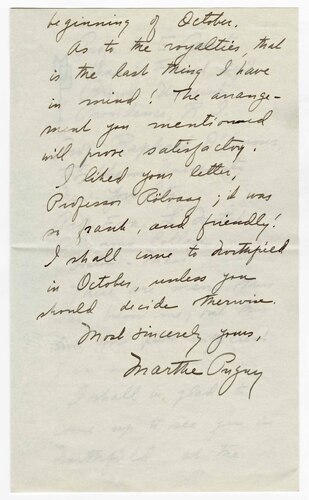 beginning of October.
As to the royalties, that
is the last thing I have
in mind! The arrange-
ment you mentioned
will prove satisfactory.
I liked your letter,
Professor Rölvaag; it was
so frank, and friendly!
I shall come to Northfield
in October, unless you
should decide otherwise.
Most sincerely yours,
Marthe